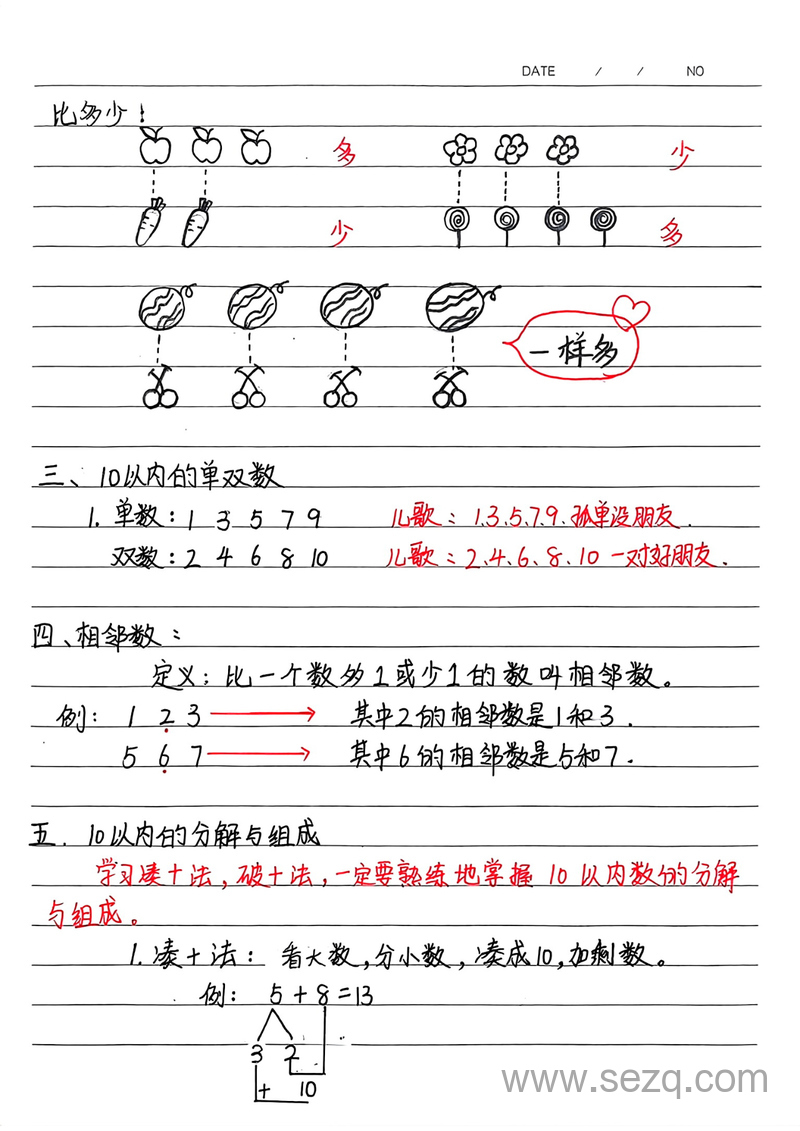 DATE / / NO
比多少！
多 少
少 多
一样多
三、10以内的单双数
1. 单数：1 3 5 7 9 儿歌：1.3.5.7.9.孤单没朋友.
双数：2 4 6 8 10 儿歌：2、4、6、8、10 一对好朋友.
四、相邻数：
定义：比一个数多1或少1的数叫相邻数。
例：1 2 3 其中2的相邻数是1和3.
5 6 7 其中6的相邻数是5和7.
五. 10以内的分解与组成
学习凑十法，破十法，一定要熟练地掌握 10 以内数的分解
与组成。
1. 凑十法：看大数，分小数，凑成10，加剩数。
例：5+8=13
3 2
+ 10
www.sezq.com